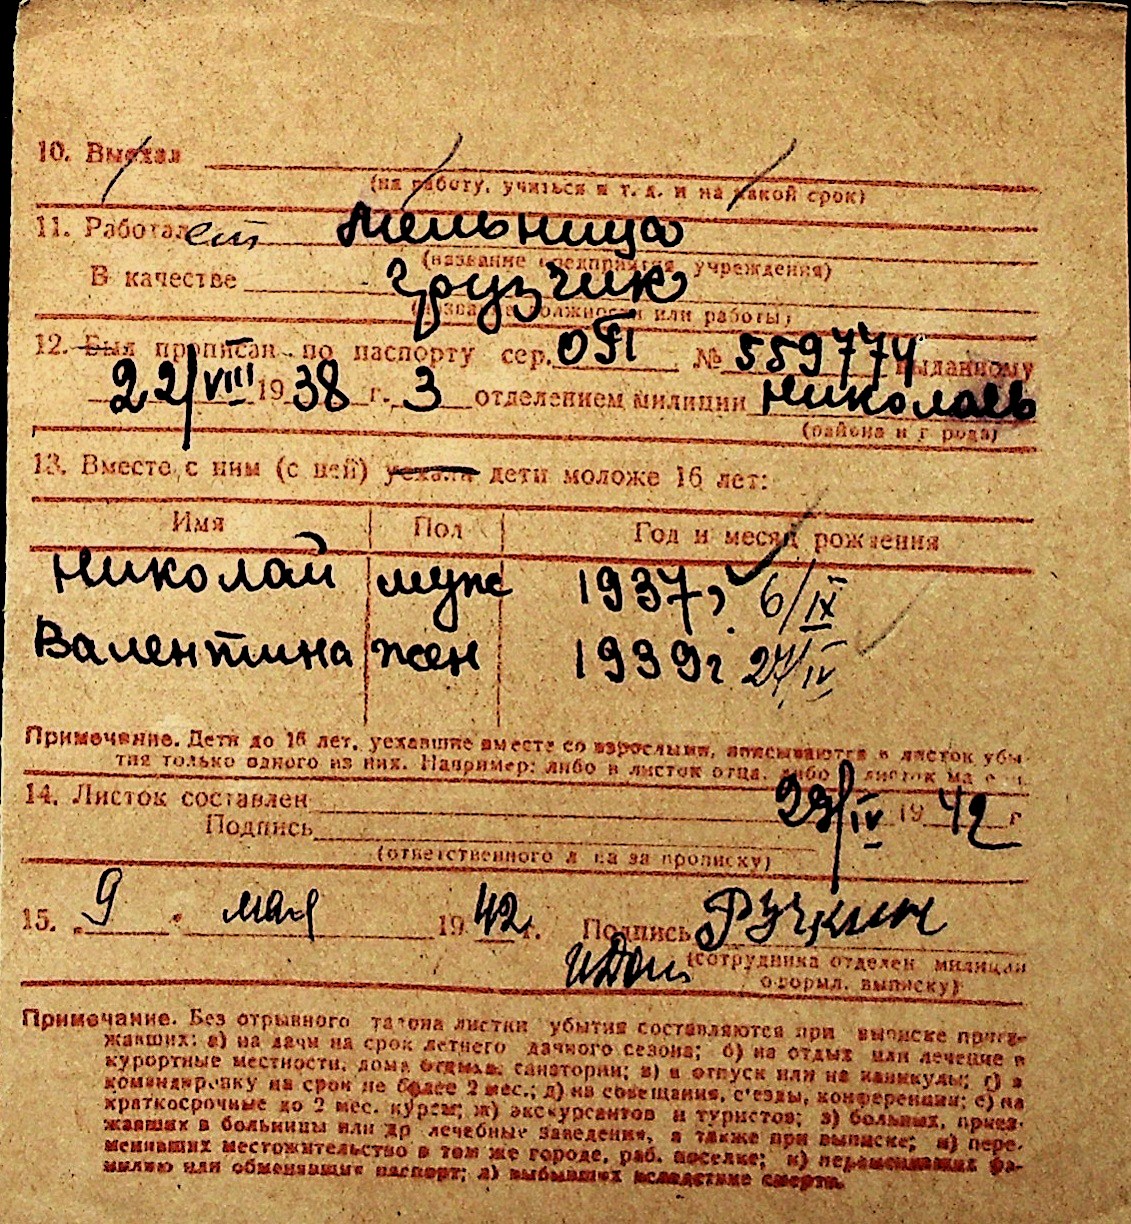 10. Выехал
(на работу, учиться и т. д. и на какой срок)
11. Работает Мельница
(название предприятия, учреждения)
В качестве грузчик
(название должности или работы)
12. Был прописан по паспорту сер. № 559774 выданному
22/VIII 1938 г. 3 отделением милиции Николаев
(района и города)
13. Вместе с ним (с ней) уехали дети моложе 16 лет:
Имя Пол Год и месяц рождения
Николай муж 1937, 6/IX
Валентина жен 1939г 27/IV
Примечание. Дети до 16 лет, уехавшие вместе со взрослыми, вписываются в листок убы-
тия только одного из них. Например: либо в листок отца, либо в листок матери.
14. Листок составлен 29/IV 1942 г
Подпись
(ответственного лица за прописку)
15. „9 " мая 1942 г. Подпись Ручкин
(сотрудника отделен. милиции
оформл. выписку)
Примечание. Без отрывного талона листки убытия составляются при выписке приез-
жавших: а) на дачи на срок летнего дачного сезона; б) на отдых или лечение в
курортные местности, дома отдыха, санатории; в) в отпуск или на каникулы; г) в
командировку на срок не более 2 мес.; д) на совещания, с'езды, конференции; е) на
краткосрочные до 2 мес. курсы; ж) экскурсантов и туристов; з) больных, приез-
жавших в больницы или др лечебные заведения, а также при выписке; и) пере-
менивших местожительство в том же городе, раб. поселке; к) переменивших фа-
милию или обменявших паспорт; л) выбывших вследствие смерти.